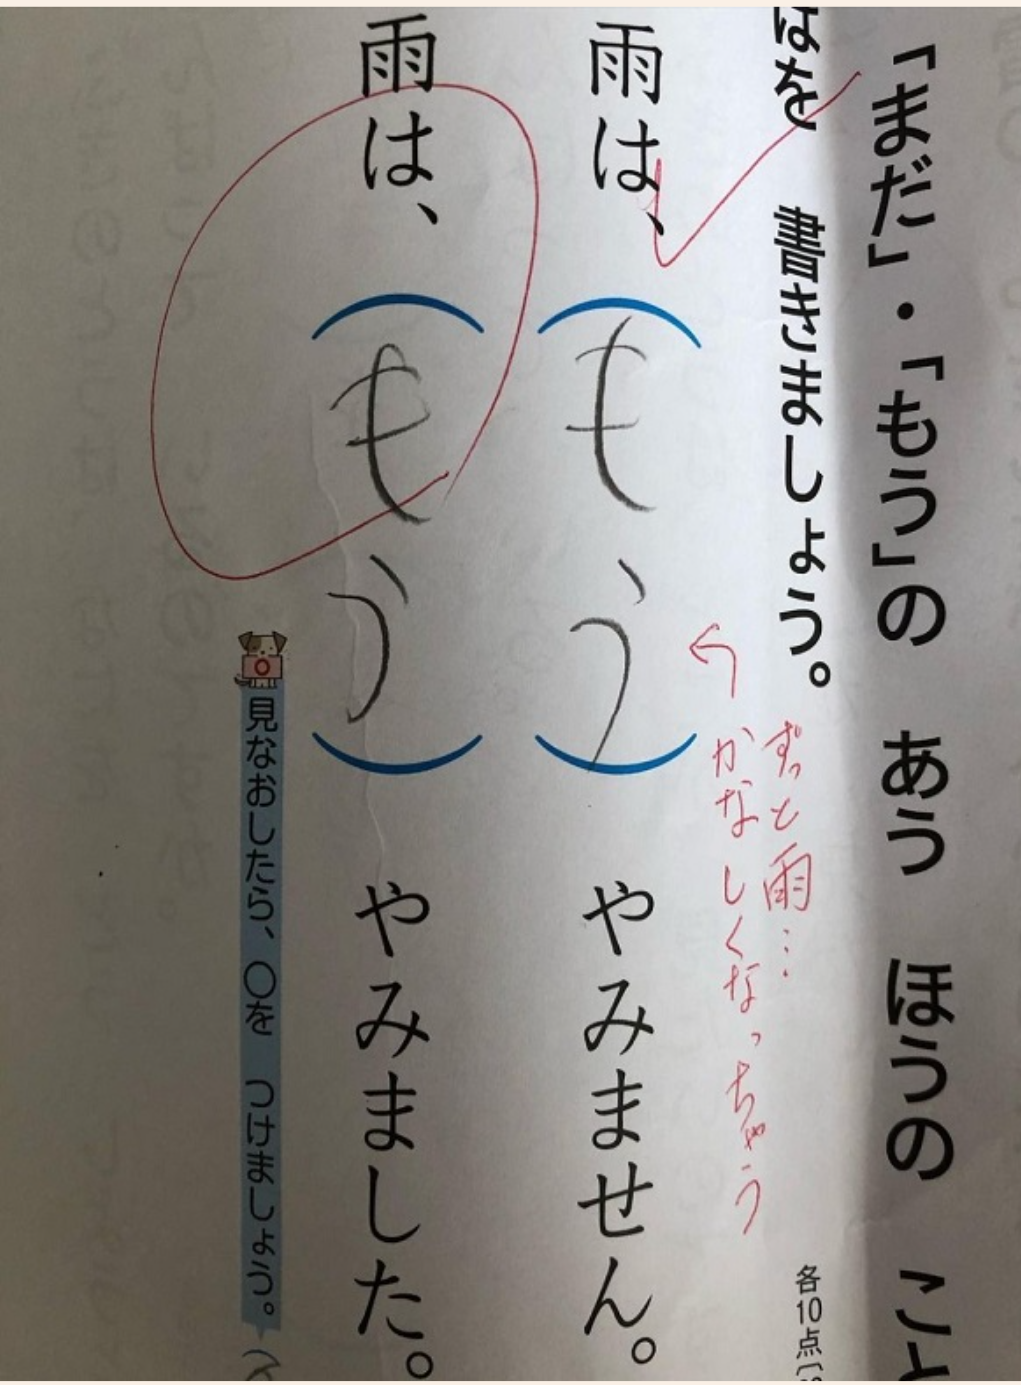 「まだ」・「もう」の あう ほうの こと
ばを 書きましょう。
各10点
ずっと雨…
かなしくなっちゃう
雨は、(もう)やみません。
雨は、(もう)やみました。
見なおしたら、〇を つけましょう。